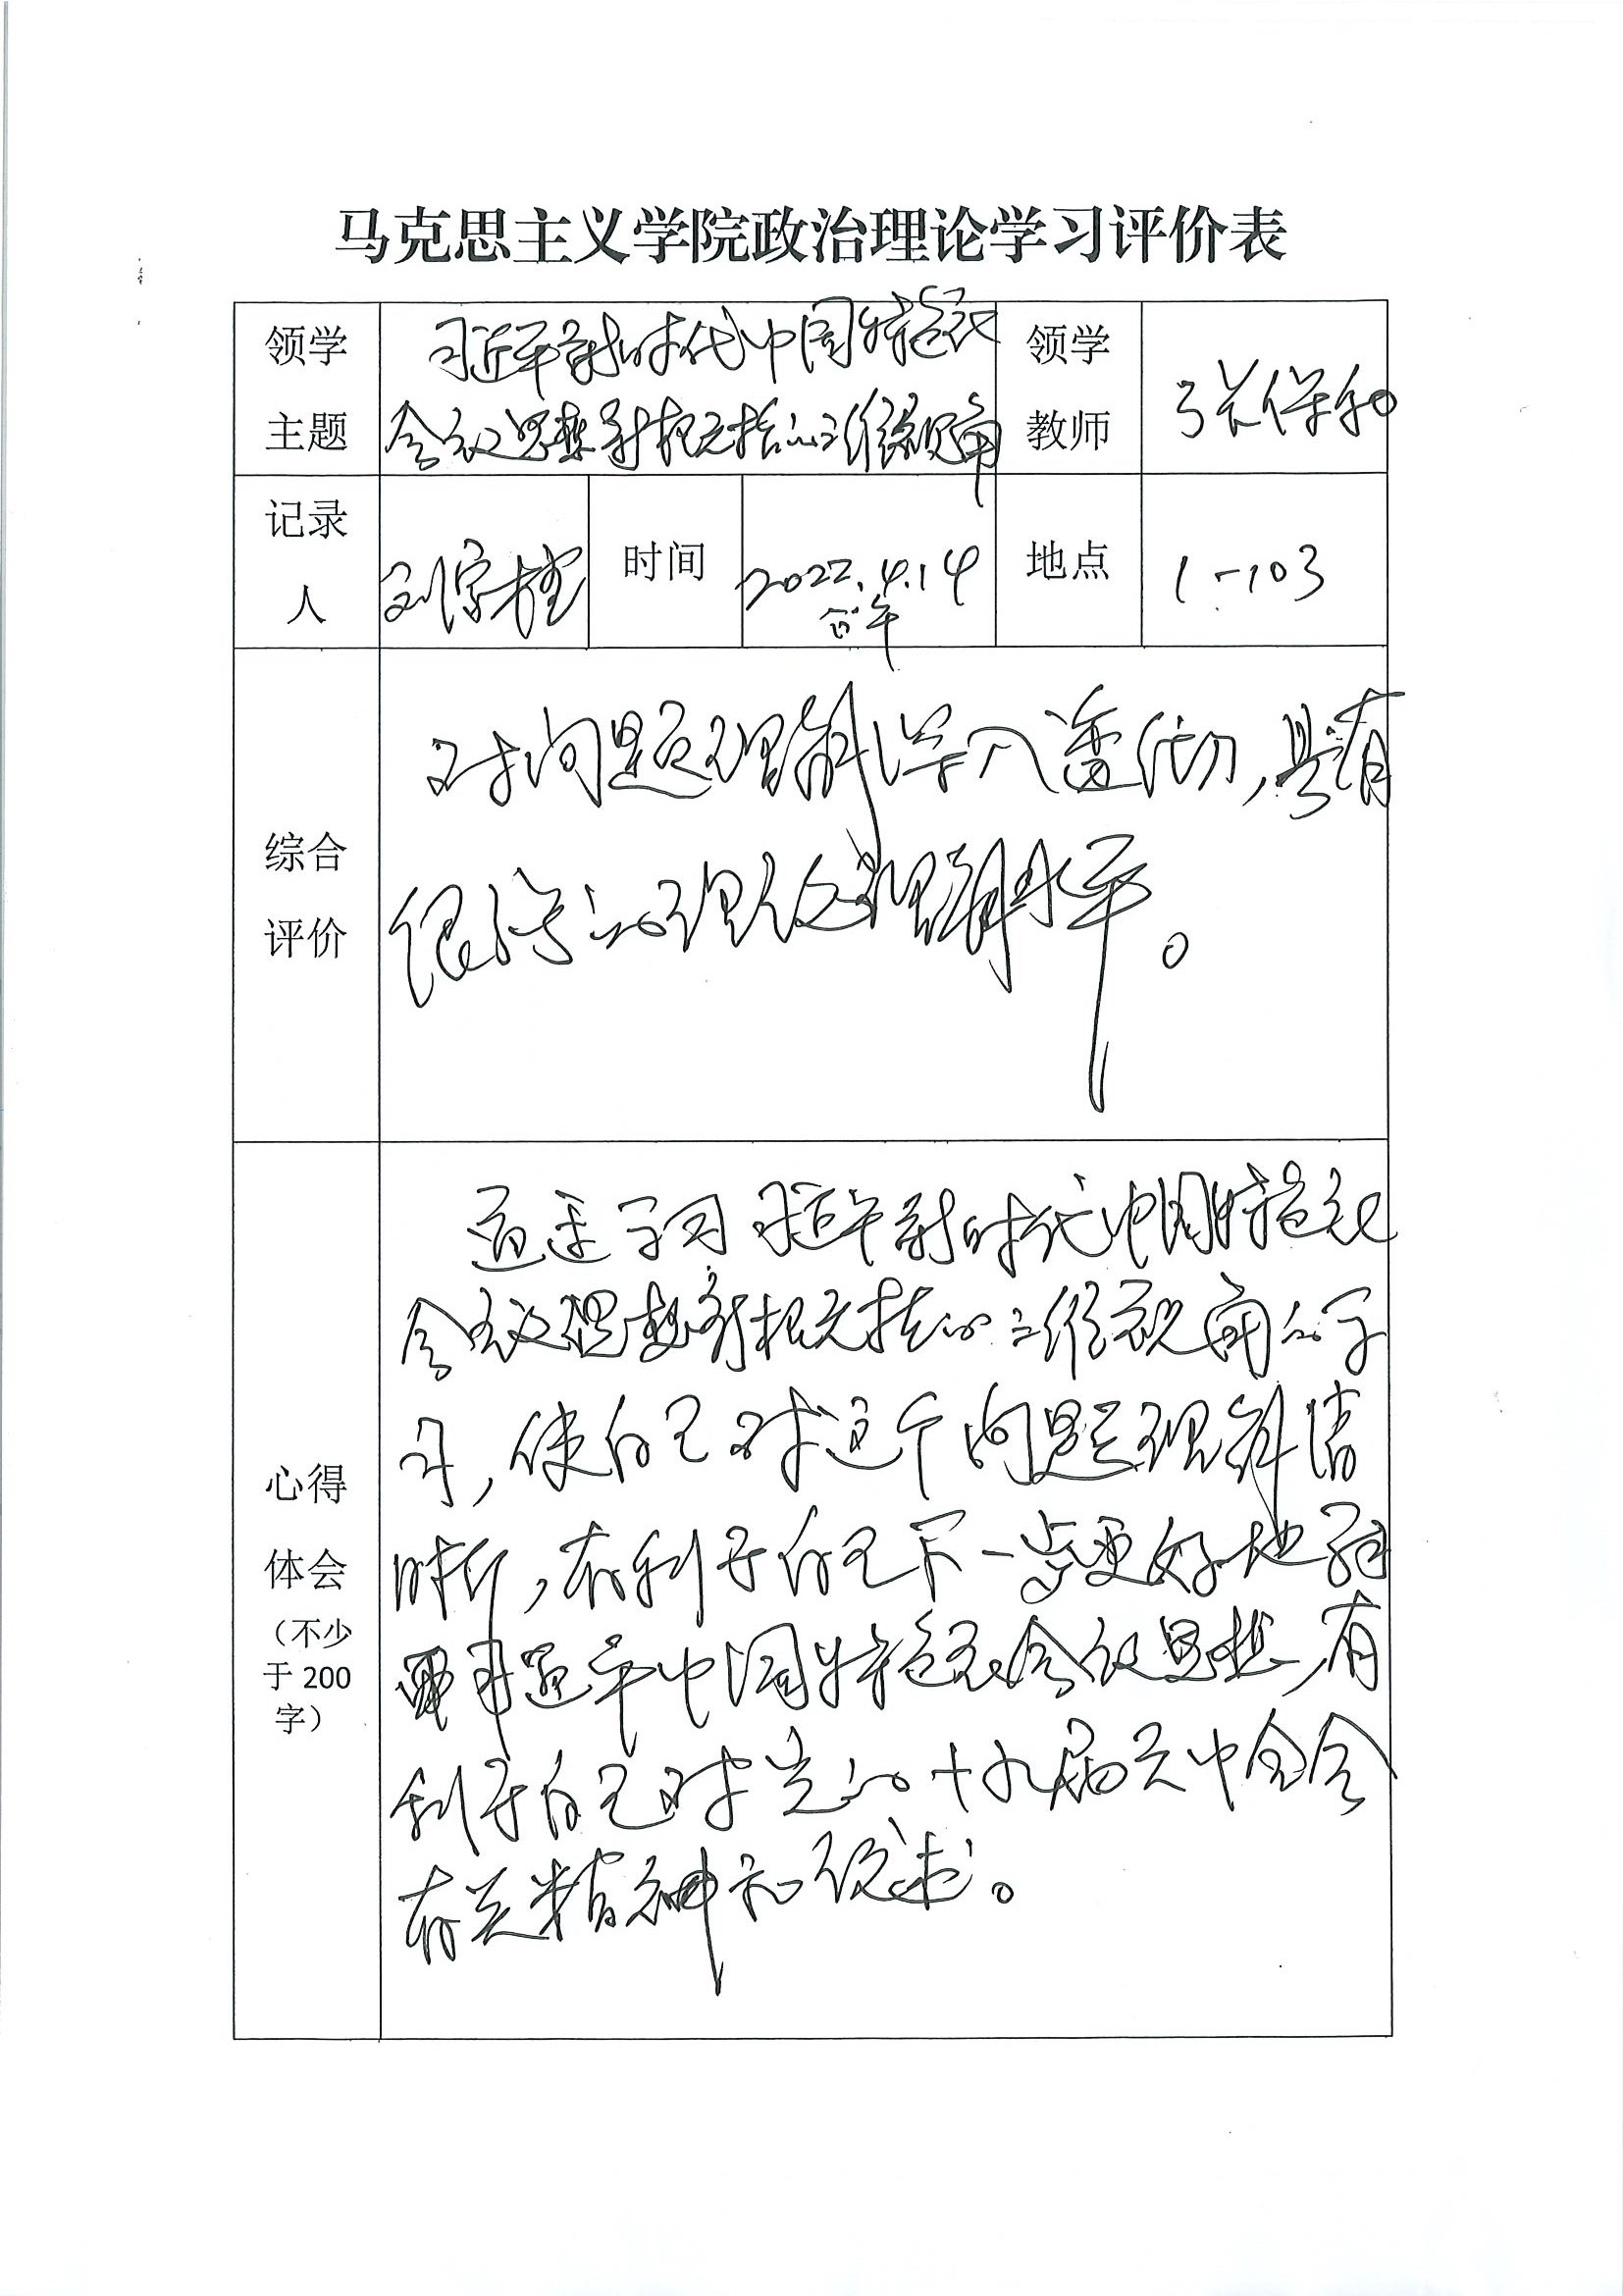 马克思主义学院政治理论学习评价表
领学
主题
习近平新时代中国特色社
会主义思想 的三维视角
领学
教师
张保和
记录
人
时间
2022.4.14
下午
地点
1-103
综合
评价
对问题理解深入透彻，具有
很高的理论理解水平。
心得
体会
（不少
于 200
字）
通过学习习近平新时代中国特色社
会主义思想 的三维视角的学
习，使自己对这个问题理解清
晰，有利于自己下一步更好地
习近平中国特色社会主义思想，有
利于自己对党的十九届六中全会
有关精神和 。